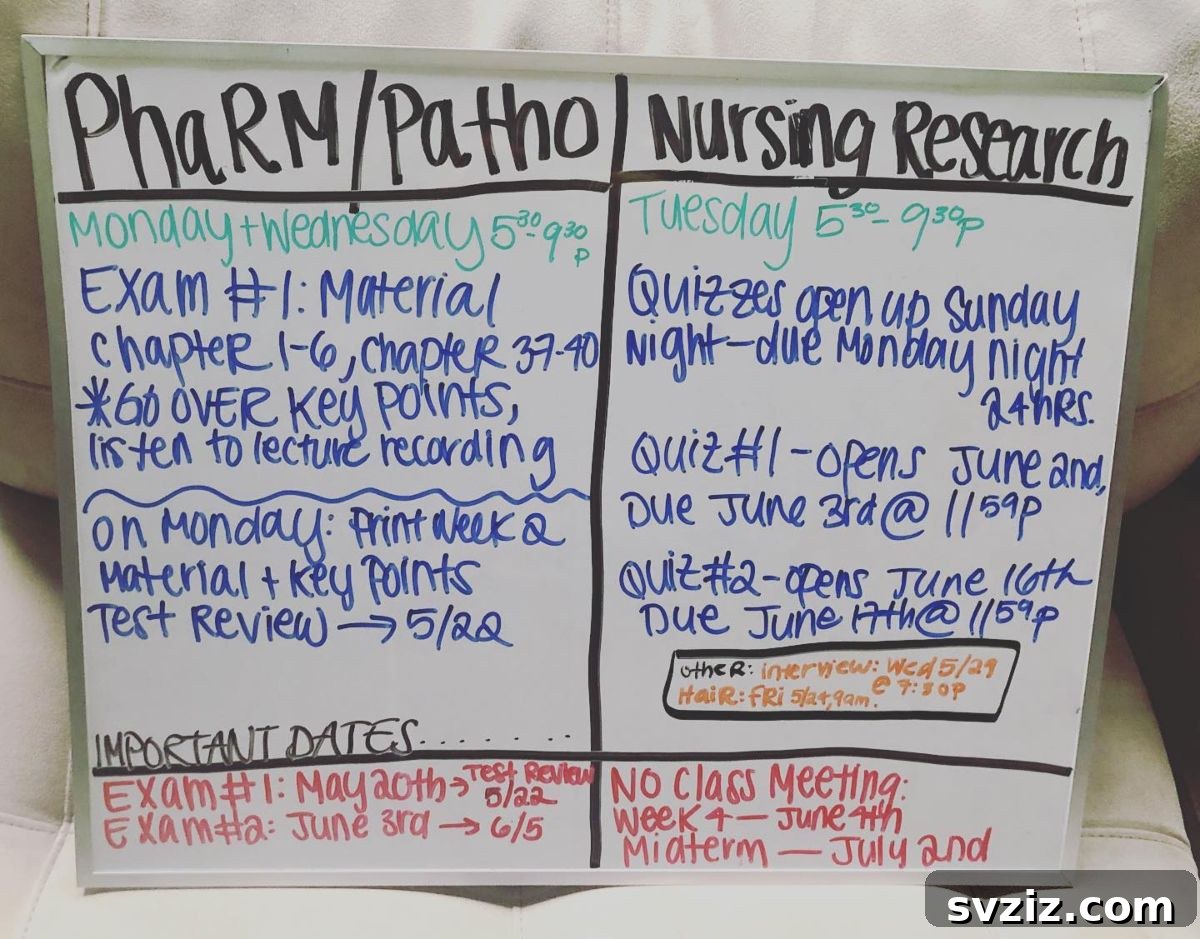 PhaRM/Patho
Monday + Wednesday 5:30-9:30p
Exam #1: Material
Chapter 1-6, Chapter 37-40
*Go over Key Points,
listen to lecture recording
on Monday: Print Week 2
Material + Key Points
Test Review → 5/22
IMPORTANT DATES........
Exam #1: May 20th → Test Review 5/22
Exam #2: June 3rd → 6/5
Nursing Research
Tuesday 5:30-9:30p
Quizzes open up Sunday
Night-due Monday night
24hRs.
Quiz #1 - opens June 2nd,
Due June 3rd @ 1159p
Quiz #2 - opens June 16th
Due June 17th @ 1159p
other: interview: Wed 5/29
@ 7:30p
Hair: FRi 5/24, 9am.
No Class Meeting:
Week 4 — June 4th
Midterm — July 2nd
svziz.com